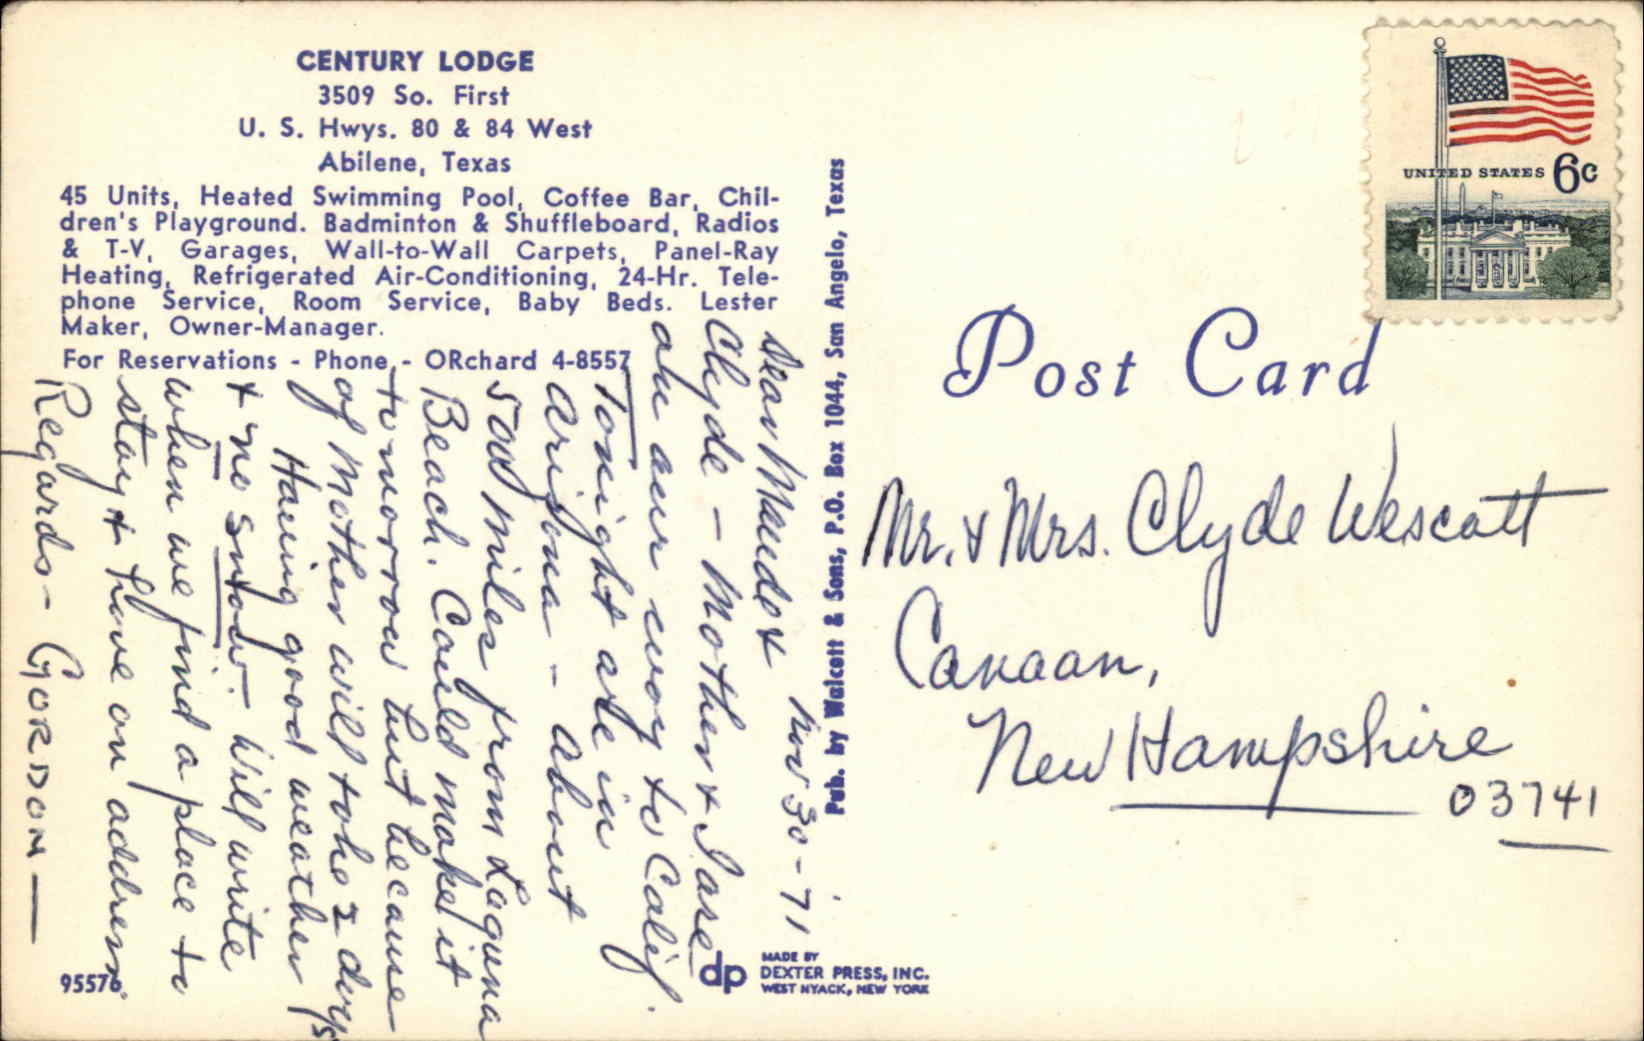 CENTURY LODGE
3509 So. First
U. S. Hwys. 80 & 84 West
Abilene, Texas
45 Units, Heated Swimming Pool, Coffee Bar, Chil-
dren's Playground. Badminton & Shuffleboard, Radios
& T-V, Garages, Wall-to-Wall Carpets, Panel-Ray
Heating, Refrigerated Air-Conditioning, 24-Hr. Tele-
phone Service, Room Service, Baby Beds. Lester
Maker, Owner-Manager.
For Reservations - Phone - ORchard 4-8557
Nov 30 - 71
Dear Maude &
Clyde - Mother & I are
on our way to Calif.
Tonight are in
Arizona - About
500 miles from Laguna
Beach. Could make it
tomorrow but because
of Mother will take 2 days
Having good weather
& no snow. Will write
when we find a place to
stay & have an address
Regards - GORDON
95576
Pub. by Walcott & Sons, P.O. Box 1044, San Angelo, Texas
dp
MADE BY
DEXTER PRESS, INC.
WEST NYACK, NEW YORK
UNITED STATES 6c
Post Card
Mr. & Mrs. Clyde Wescott
Canaan,
New Hampshire
03741